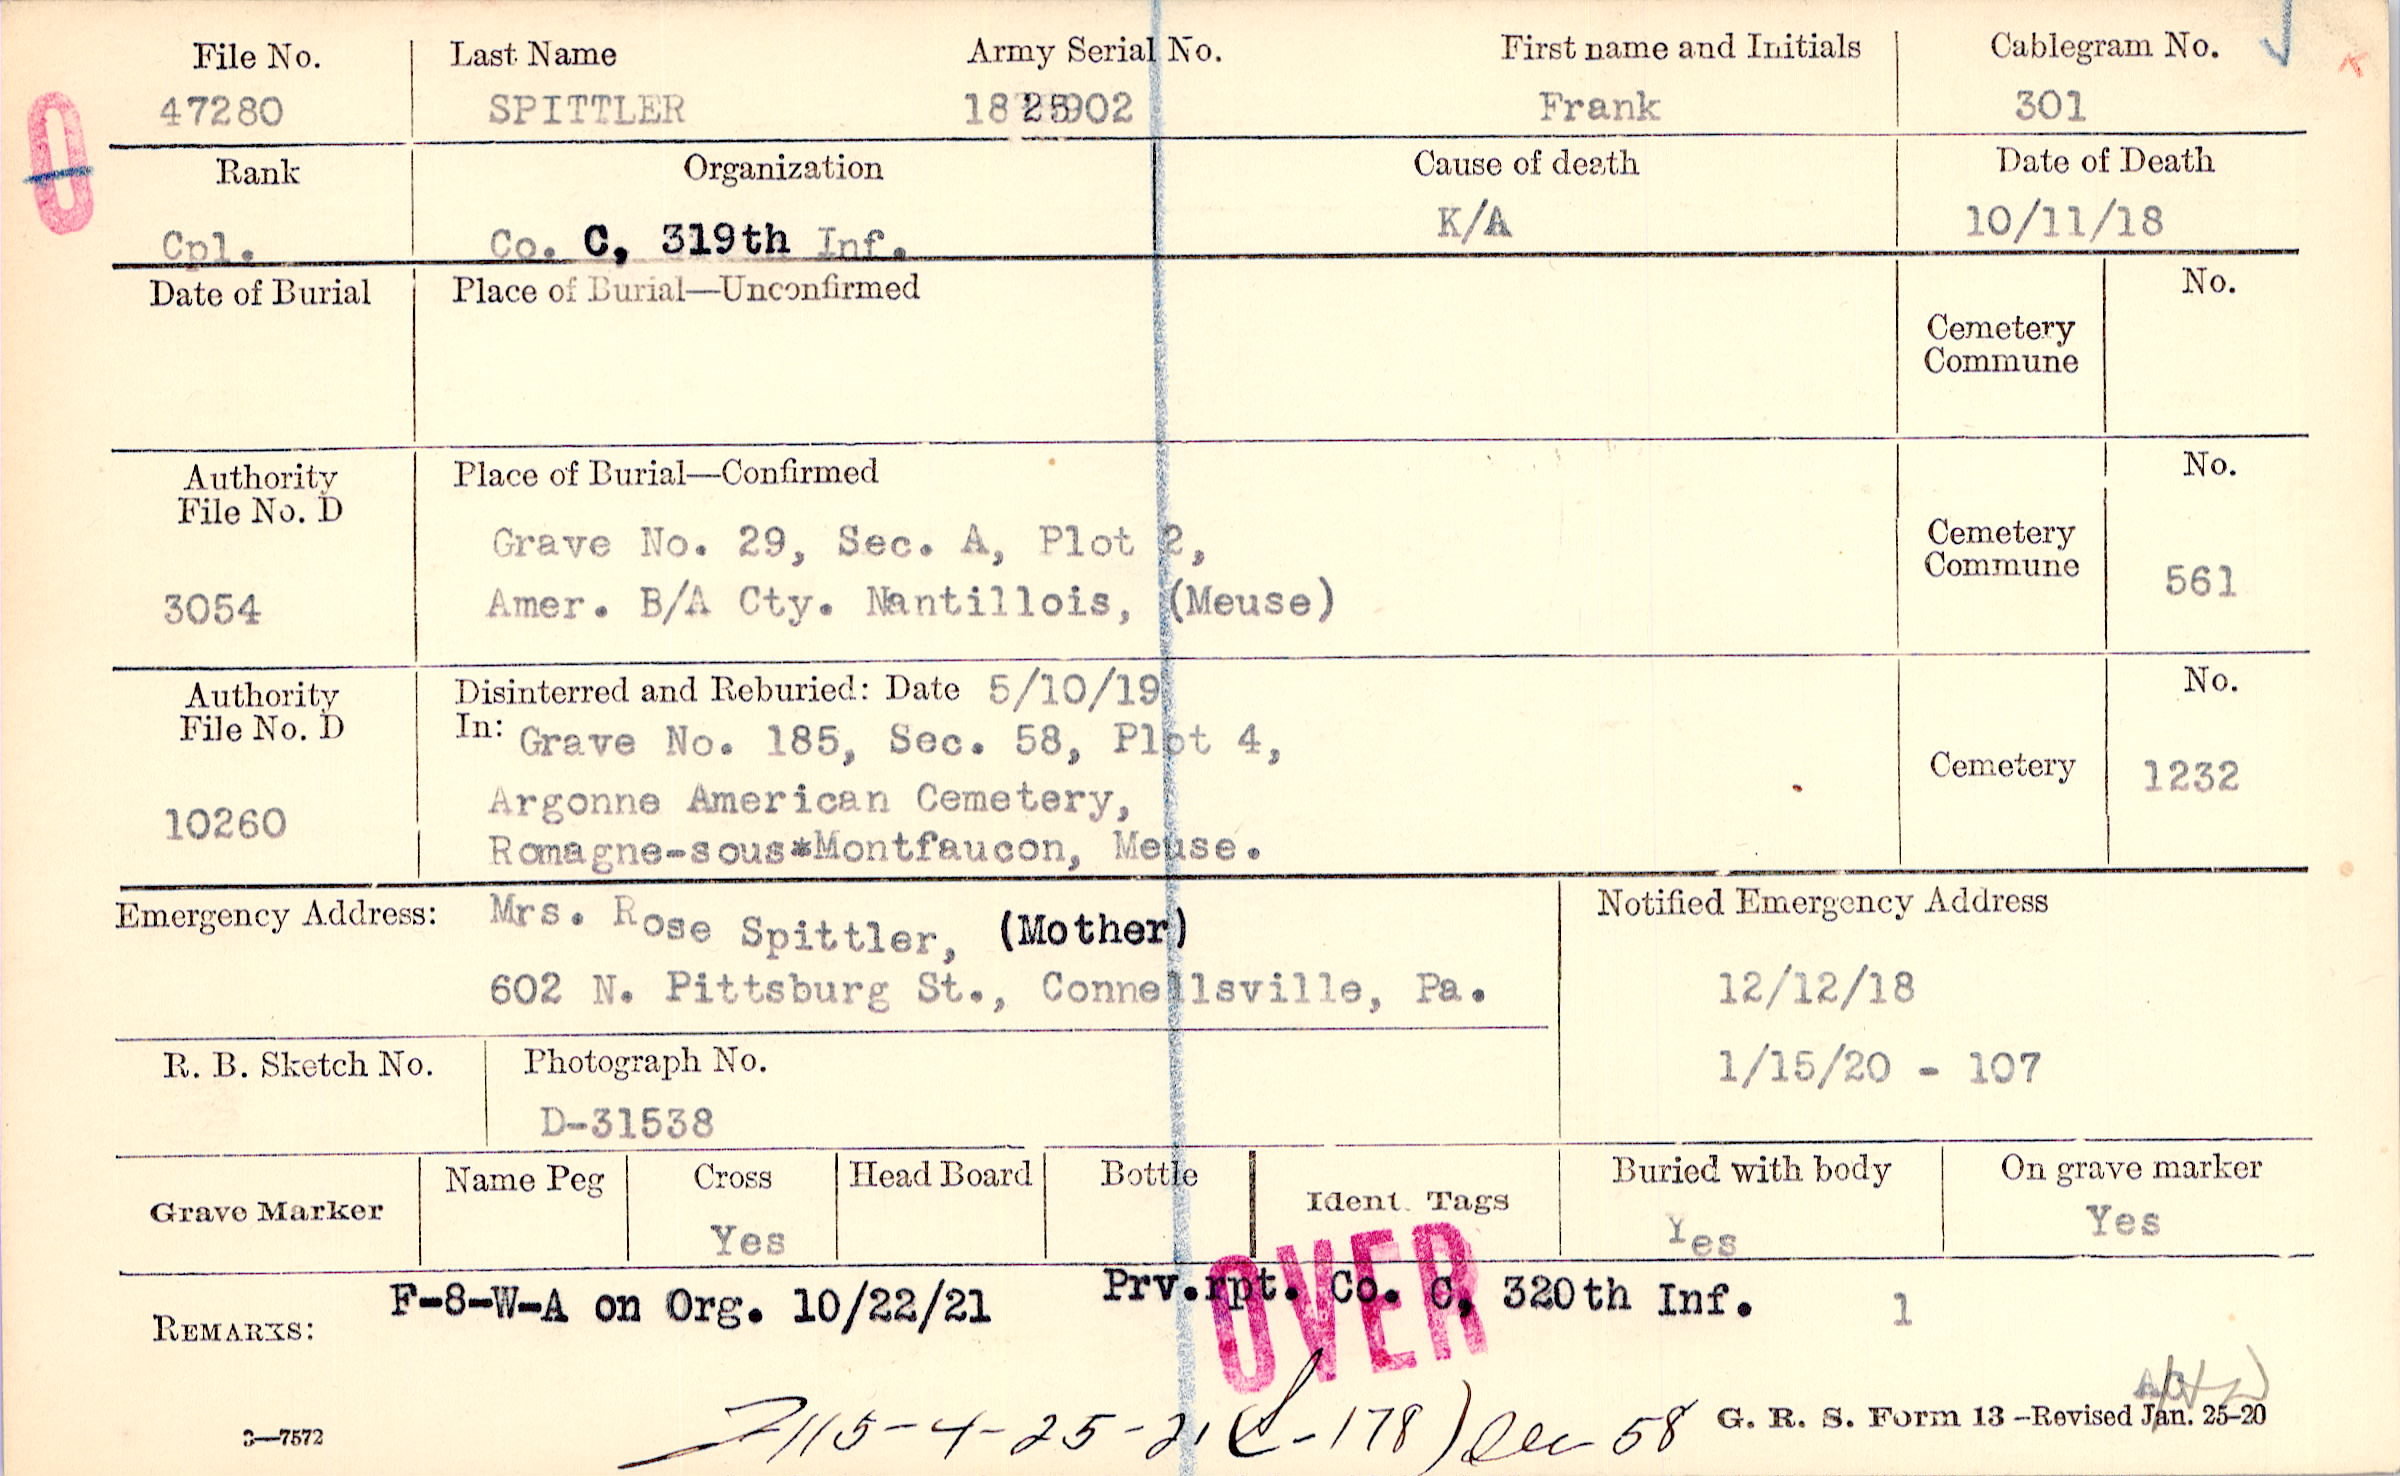 File No. Last Name Army Serial No. First name and Initials Cablegram No.
47280 SPITTLER 1825902 Frank 301
Rank Organization Cause of death Date of Death
Cpl. Co. C, 319th Inf. K/A 10/11/18
Date of Burial Place of Burial—Unconfirmed No.
Cemetery
Commune
Authority Place of Burial—Confirmed No.
File No. D
Grave No. 29, Sec. A, Plot 2, Cemetery
Commune
3054 Amer. B/A Cty. Nantillois, (Meuse) 561
Authority Disinterred and Reburied: Date 5/10/19 No.
File No. D In: Grave No. 185, Sec. 58, Plot 4,
Cemetery 1232
10260 Argonne American Cemetery,
Romagne-sous*Montfaucon, Meuse.
Emergency Address: Mrs. Rose Spittler, (Mother) Notified Emergency Address
602 N. Pittsburg St., Connellsville, Pa. 12/12/18
R. B. Sketch No. Photograph No. 1/15/20 - 107
D-31538
Grave Marker Name Peg Cross Head Board Bottle Ident. Tags Buried with body On grave marker
Yes Yes Yes
REMARKS: F-8-W-A on Org. 10/22/21 Prv.rpt. Co. C, 320th Inf. 1
OVER
115-4-25-21 -178) Sec 58
3—7572 G. R. S. Form 13 -Revised Jan. 25-20